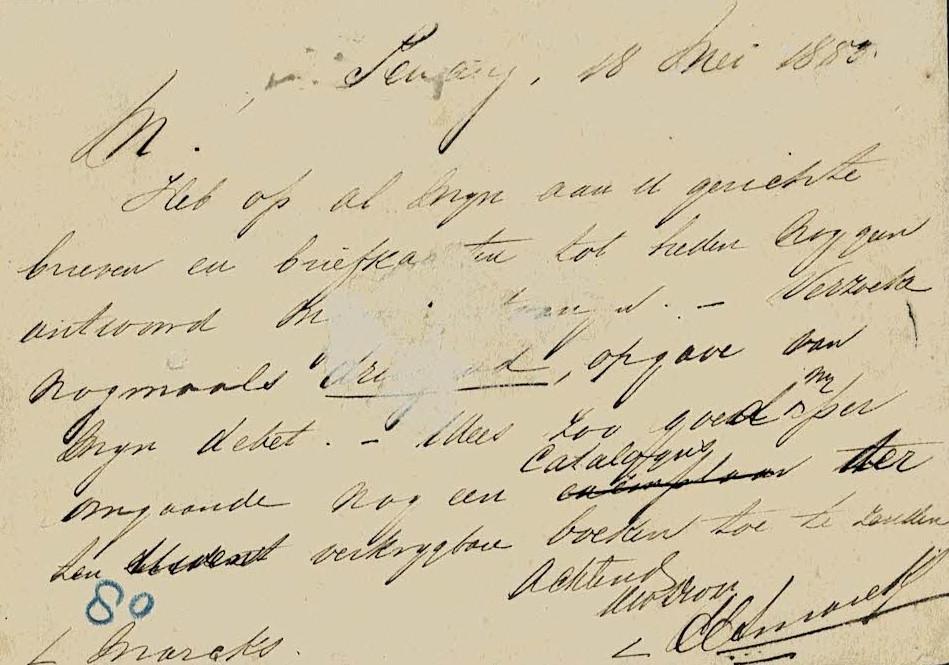 18 Mei 188
M.
Heb op al mijn aan u gerichte
brieven en briefkaarten tot heden nog geen
antwoord ontvangen. — Verzoeke
nogmaals dringend, opgave van
mijn debet. — Wees zoo goed my per
omgaande nog een Catalogus der
ten verkrygbare boeken toe te zenden
Achtend
80